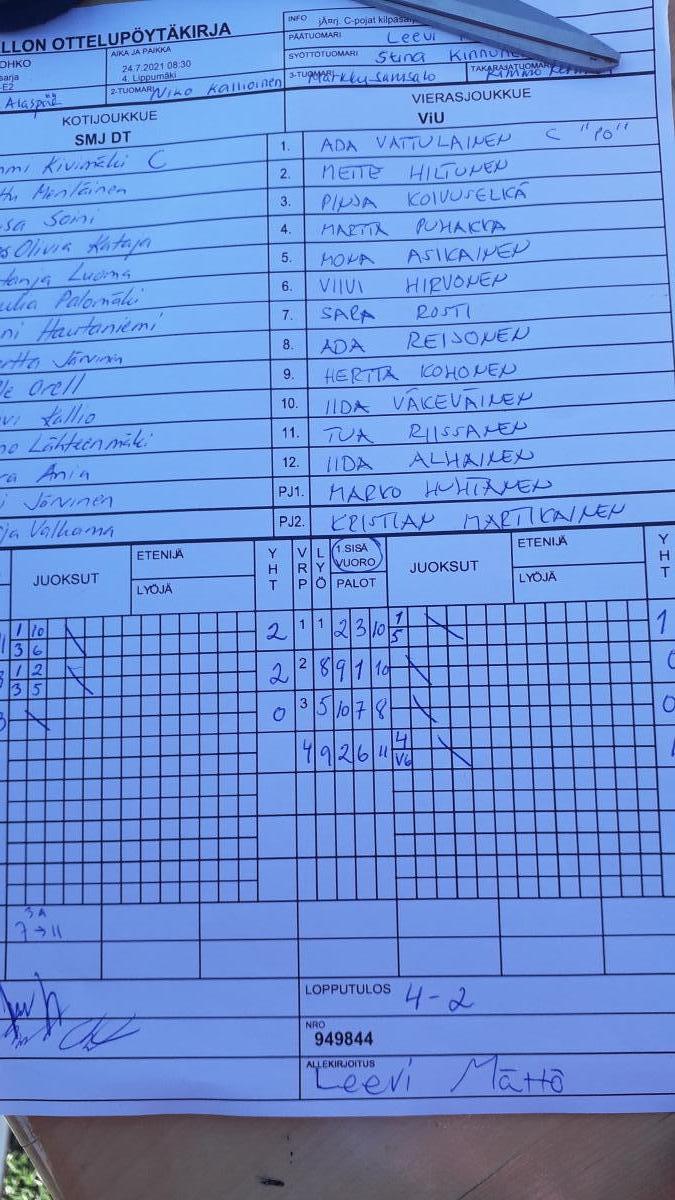 LLON OTTELUPÖYTÄKIRJA
INFO
jÃ¤rj. C-pojat kilpasarj
PÄÄTUOMARI Leevi
OHKO
AIKA JA PAIKKA
SYÖTTÖTUOMARI Stina Kinnune
sarja
-E2
24.7.2021 08:30
4. Lippumäki
3-TUOMARI
TAKARAJATUOMARI
Alaspää
2-TUOMARI Niko Kallioinen
KOTIJOUKKUE
VIERASJOUKKUE
SMJ DT
ViU
mmi Kivimäki C
1. ADA VATTULAINEN C "PO"
Mentäinen
2. METTE HILTUNEN
sa Soini
3. PINJA KOIVUSELKÄ
Olivia Kataja
4. MARTTA PUHAKKA
Tanja Luoma
5. MONA ASIKAINEN
ulia Palomäki
6. VIIVI HIRVONEN
ni Hautaniemi
7. SARA ROSTI
ertta Järvinen
8. ADA REIJONEN
le Orell
9. HERTTA KOHONEN
vi Kallio
10. IIDA VÄKEVÄINEN
no Lähteenmäki
11. TUA RIISSANEN
ra Ania
12. IIDA ALHAINEN
i Järvinen
PJ1. MARKO HUHTANEN
ja Valkama
PJ2. KRISTIAN MARTIKAINEN
JUOKSUT
ETENIJÄ
LYÖJÄ
YHT
VRP
LYÖ
1.SISÄ
VUORO
PALOT
JUOKSUT
ETENIJÄ
LYÖJÄ
YHT
1 10
3 6
2 1 1 2 3 10
1
5
1
1 2
3 5
2 2 8 9 1 10
0
0 3 5 10 7 8
0
4 9 2 6 11
4
V6
3A
7→11
LOPPUTULOS 4-2
NRO
949844
ALLEKIRJOITUS
Leevi Mättö